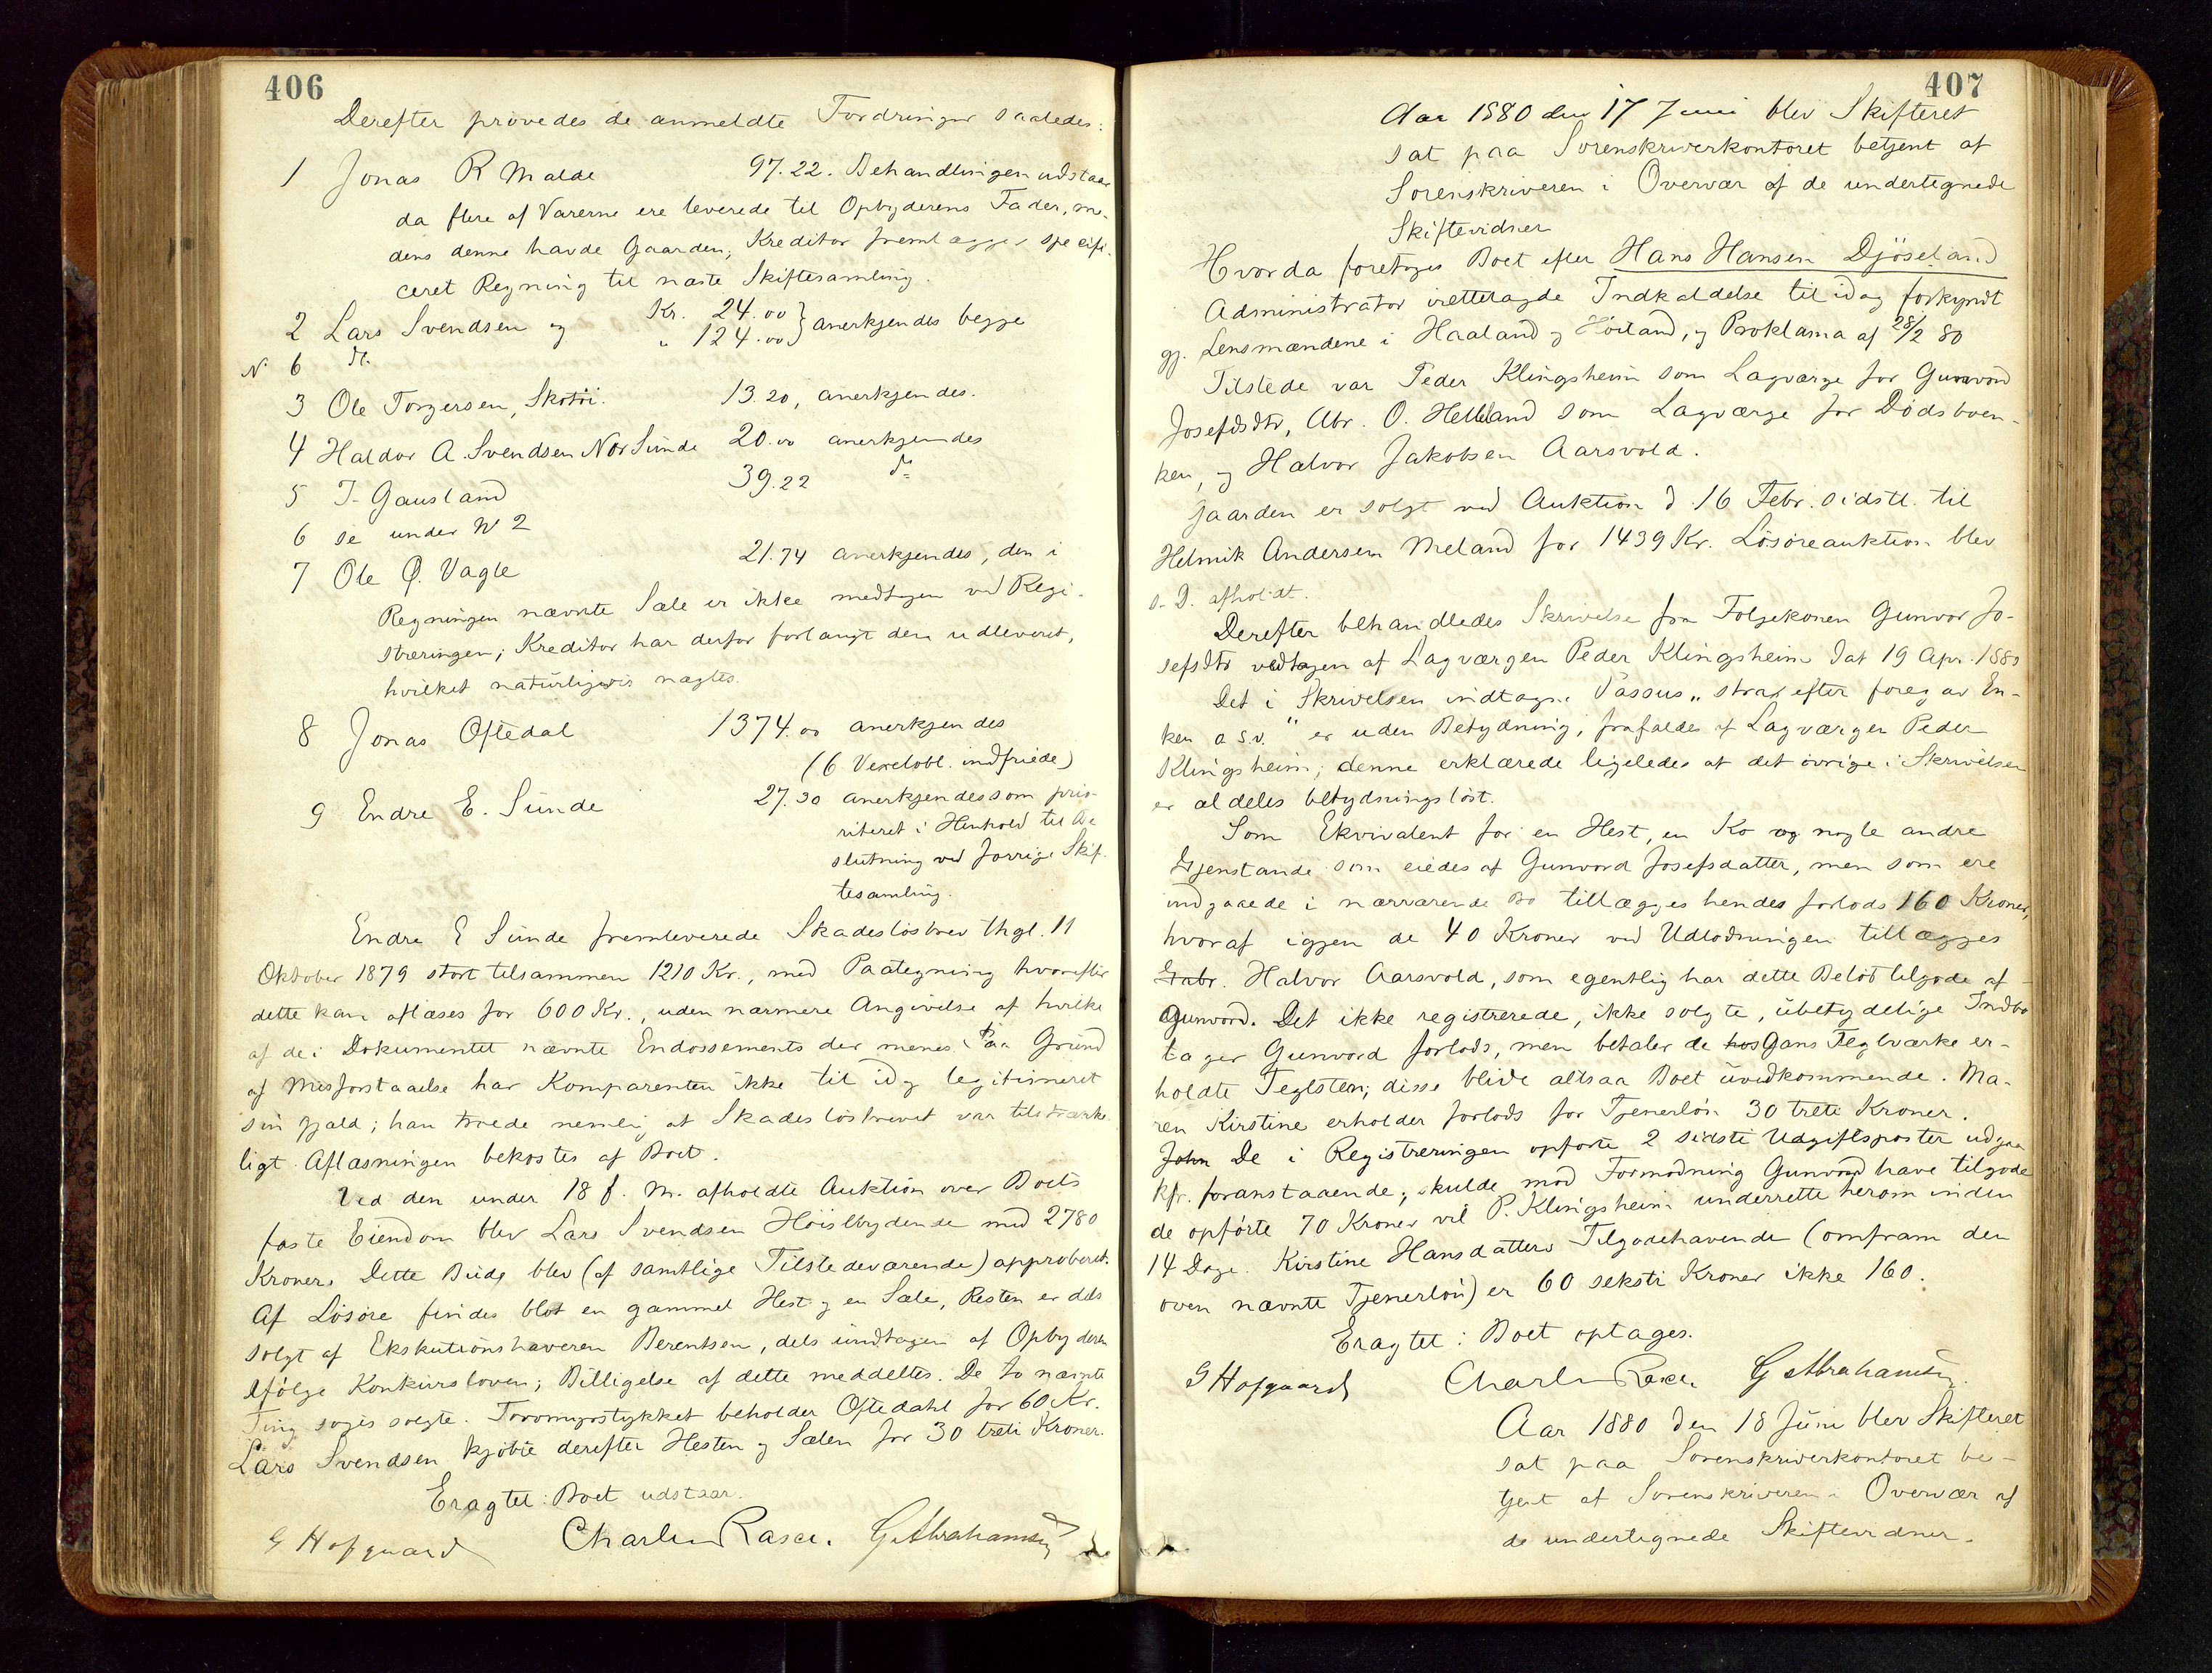 406
Derefter prövedes de anmeldte Fordringer saaledes:
1 Jonas R Malde 97.22. Behandlingen udstaar
da flere af Varerne ere leverede til Opbyderens Fader, me-
dens denne havde Gaarden; Kreditor fremlægger specifi-
ceret Regning til næste Skiftesamling.
2 Lars Svendsen og Kr. 24.00 } anerkjendes begge
N 6 do. " 124.00
3 Ole Torgersen, Skotöi. 13.20, anerkjendes.
4 Haldor A. Svendsen Nor Sunde 20.00 anerkjendes
5 T. Gausland 39.22 do
6 se under N 2
7 Ole Ø. Vagle 21.74 anerkjendes, den i
Regningen nævnte Sæle er ikke medtagen ved Regi-
streringen; Kreditor har derfor forlangt den udleveret,
hvilket naturligvis nægtes.
8 Jonas Oftedal 1374.00 anerkjendes
(6 Vexelobl. indfriede)
9 Endre E. Sunde 27.30 anerkjendes som prio-
riteret i Henhold til Be
slutning ved forrige Skif-
tesamling.
Endre E Sunde fremleverede Skadeslösbrev thgl. 11
Oktober 1879 stort tilsammen 1210 Kr., med Paategning hvorefter
dette kan aflæses for 600 Kr., uden nærmere Angivelse af hvilke
af de i Dokumentet nævnte Endossements der menes. Paa Grund
af Misforstaaelse har Komparenten ikke til idag legitimeret
sin Gjæld; han troede nemlig at Skadeslösbrevet var tilstrække
ligt. Aflæsningen bekostes af Boet.
Ved den under 18 f. M. afholdte Auktion over Boets
faste Eiendom blev Lars Svendsen Höistbydende med 2780
Kroner. Dette Bud blev (af samtlige Tilstedeværende) approberet.
Af Lösöre findes blot en gammel Hest og en Sæle, Resten er dels
solgt af Eksekutionshaveren Berentsen, dels undtagen af Opbyderen
ifölge Konkursloven; Billigelse af dette meddeltes. De to nævnte
Ting söges solgte. Torvmyrstykket beholder Oftedahl for 60 Kr.
Lars Svendsen kjöbte derefter Hesten og Sælen for 30 treti Kroner.
Eragtet: Boet udstaar.
G Hofgaard Charles Rasch. G Abrahamsen
407
Aar 1880 den 17 Juni blev Skifteret
sat paa Sorenskriverkontoret betjent af
Sorenskriveren i Overvær af de undertegnede
Skiftevidner
Hvorda foretoges Boet efter Hans Hansen Djöseland
Administrator irettelagde Indkaldelse til idag forkyndt
gj. Lensmændene i Haaland og Höiland, og Proklama af 28/2 80
Tilstede var Peder Klingsheim som Lagværge for Gunvord
Josefsdtr, Abr. O. Helland som Lagværge for Dödsboen-
ken, og Halvor Jakobsen Aarsvold.
Gaarden er solgt ved Auktion d. 16 Febr. sidstl. til
Helmik Andersen Meland for 1439 Kr. Lösöreauktion blev
s. D. afholdt.
Derefter behandledes Skrivelse fra Folgekonen Gunvor Jo-
sefsdtr vedtagen af Lagværgen Peder Klingsheim dat 19 Apr. 1880
Det i Skrivelsen indtagne Passus "strax efter foreg av En-
ken o s.v." er uden Betydning, frafaldes af Lagværgen Peder
Klingsheim; denne erklærede ligeledes at det övrige i Skrivelsen
er aldeles betydningslöst.
Som Ekvivalent for en Hest, en Ko og nogle andre
Gjenstande som eiedes af Gunvord Josefsdatter, men som ere
indgaaede i nærværende Bo tillægges hendes forlods 160 Kroner,
hvoraf igjen de 40 Kroner ved Udlodningen tillægges
Gabr. Halvor Aarsvold, som egentlig har dette Belöb tilgode af
Gunvord. Det ikke registrerede, ikke solgte, ubetydelige Indbo
tager Gunvord forlods, men betaler de hos Gans Teglværke er-
holdte Teglsten; disse blive altsaa Boet uvedkommende. Ma-
ren Kirstine erholder forlods for Tjenerlön 30 treti Kroner.
John De i Registreringen opförte 2 sidste Udgiftsposter udgaa
kfr. foranstaaende; skulde mod Formodning Gunvord have tilgode
de opförte 70 Kroner vil P. Klingsheim underrette herom inden
14 Dage. Kirstine Hansdatters Tilgodehavende (omfram den
oven nævnte Tjenerlön) er 60 seksti Kroner ikke 160.
Eragtet: Boet optages.
G Hofgaard Charles Rasch G Abrahamsen.
Aar 1880 den 18 Juni blev Skifteret
sat paa Sorenskriverkontoret be-
tjent af Sorenskriveren i Overvær af
de undertegnede Skiftevidner.